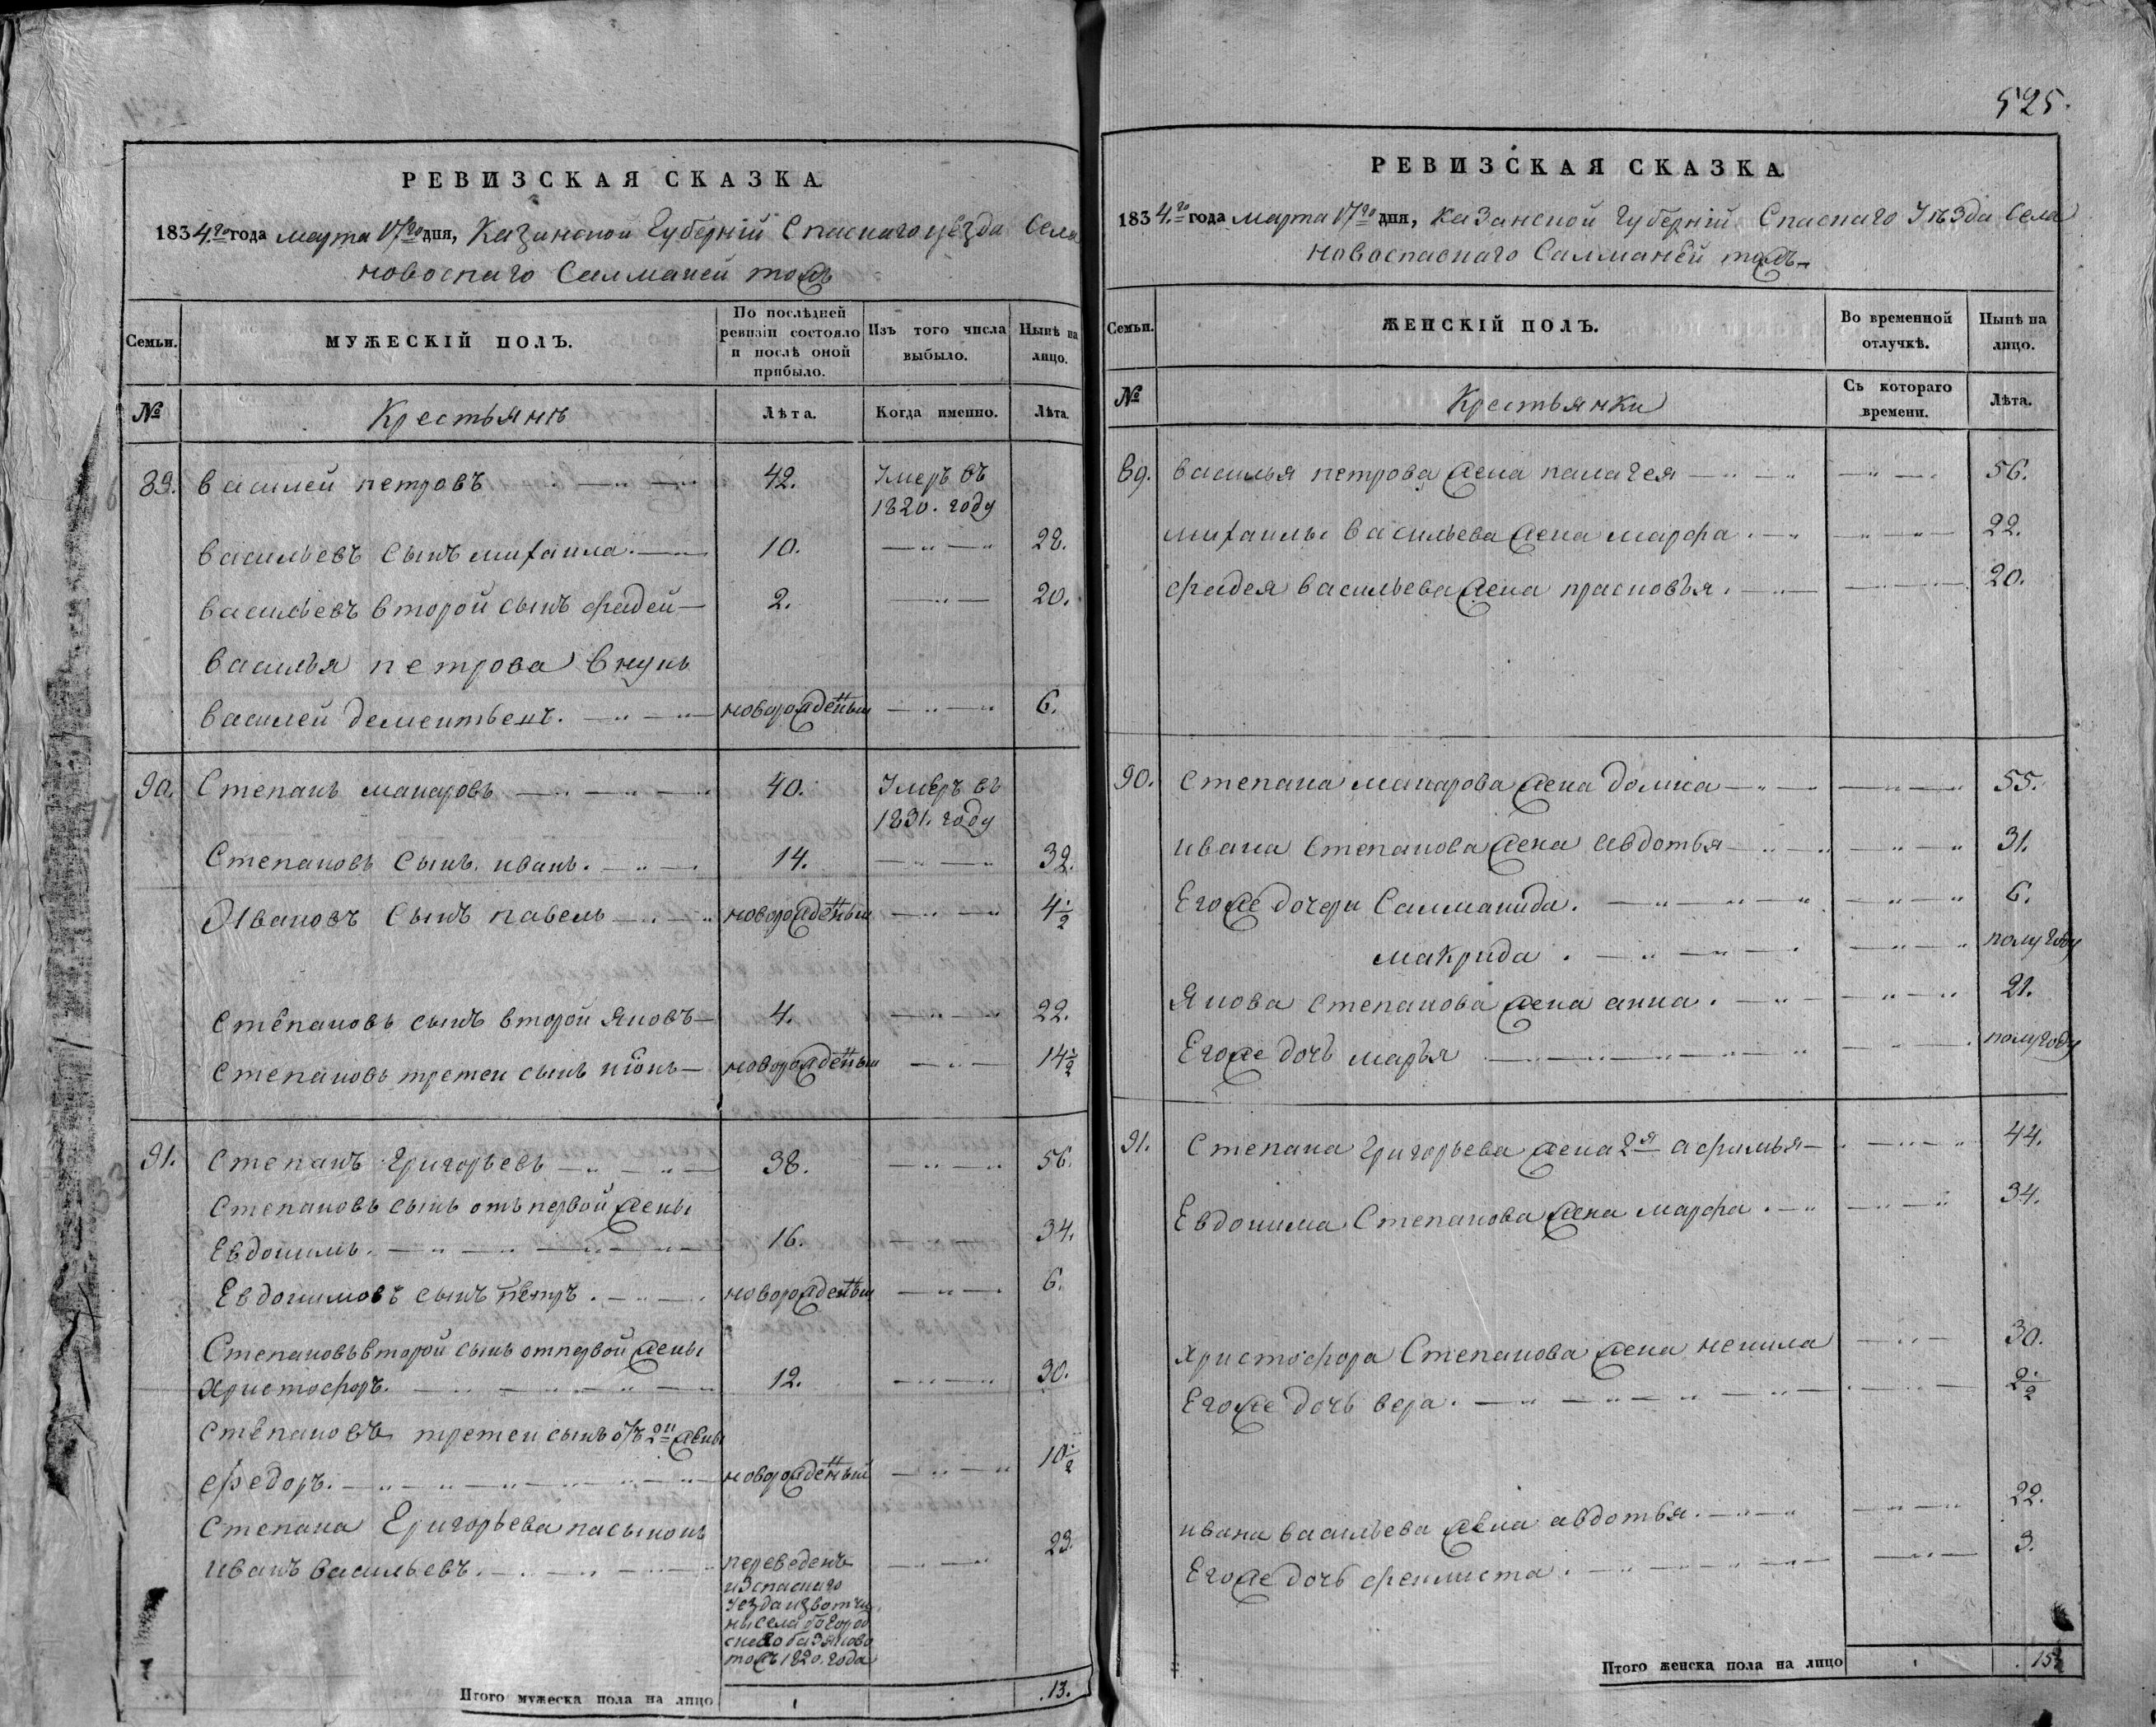 РЕВИЗСКАЯ СКАЗКА
1834.го года марта 17го дня, Казанской Губерній Спаскаго уезда Села
новоспаго Салманей тожъ
Семьи.
МУЖЕСКІЙ ПОЛЪ.
По послѣдней ревизіи состояло и послѣ оной прибыло.
Изъ того числа выбыло.
Нынѣ на лицо.
№
Крестьянѣ
Лѣта.
Когда именно.
Лѣта.
89. василей петровъ 42. Умеръ въ
1820. году
васильевъ сынъ михаила. 10. 28.
васильевъ второй сынъ фадей 2. 20.
василья петрова внукъ
василей дементьевъ. новорожденъны 6.
90. Степанъ макаровъ 40. Умеръ въ
1831. году
Степановъ сынъ иванъ. 14. 32.
Ивановъ сынъ павелъ новорожденъны 4 1/2
степановъ сынъ второй яковъ 4. 22.
степановъ третеи сынъ новорожденъны 14 1/2
91. Степанъ Григорьевъ 38. 56.
Степановъ сынъ отъ первой жены
Евдокимъ. 16. 34.
Евдокимовъ сынъ петръ. новорожденъны 6.
Степановъ второй сынъ отпервой жены
Христофоръ. 12. 30.
степановъ третеи сынъ отъ 2ои жены
Федоръ. новорожденъный 10 1/2
Степана Григорьева пасынокъ
иванъ васильевъ. переведенъ 23.
изспаскаго
уезда изъвотчи
ны села богород
скаго базяково
тожъ 1820. года
Итого мужеска пола на лицо 13.
525.
РЕВИЗСКАЯ СКАЗКА
1834.го года марта 17го дня, Казанской Губерній Спаскаго Уѣзда Села
новоспаскаго Салманей тожъ
Семьи.
ЖЕНСКІЙ ПОЛЪ.
Во временной отлучкѣ.
Нынѣ на лицо.
№
Крестьянки
Съ котораго времени.
Лѣта.
89. василья петрова жена палагея 56.
михаилы васильева жена марфа. 22.
фадея васильева жена прасковья. 20.
90. степана макарова жена домна 55.
ивана степанова жена авдотья 31.
Егоже дочери Салманида. 6.
макрида. полугоду
Якова степанова жена анна. 21.
Егоже дочь марья полугоду
91. Степана Григорьева жена 2я афимья 44.
Евдокима Степанова жена марфа. 34.
христофора Степанова жена некила 30.
Егоже дочь вера. 2 1/2
ивана васильева жена авдотья. 22.
Егоже дочь феклиста. 3.
Итого женска пола на лицо 15.